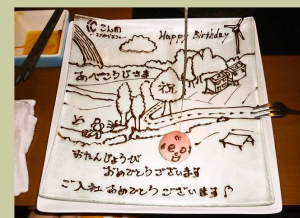 Happy Birthday
あべこうじさま
祝
おたんじょうび
おめでとうございます
ご入社 おめでとう ございます